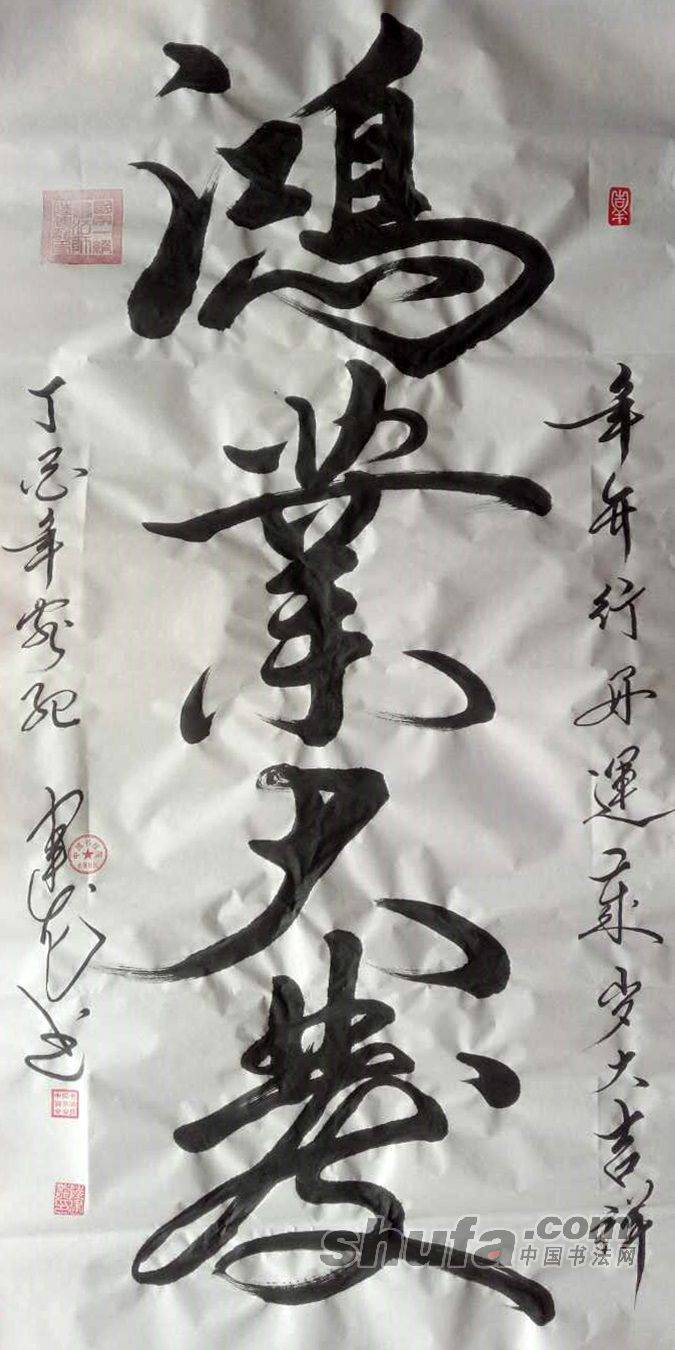 年年行好運歲岁大吉祥
鴻業大發
丁酉年
shufa.com
中国书法网